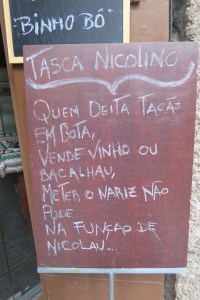 "BINHO BÔ"
TASCA NICOLINO
QUEM DEITA TACÃO
EM BOTA,
VENDE VINHO OU
BACALHAU,
METER O NARIZ NÃO
PODE
NA FUNÇÃO DE
NICOLAU...